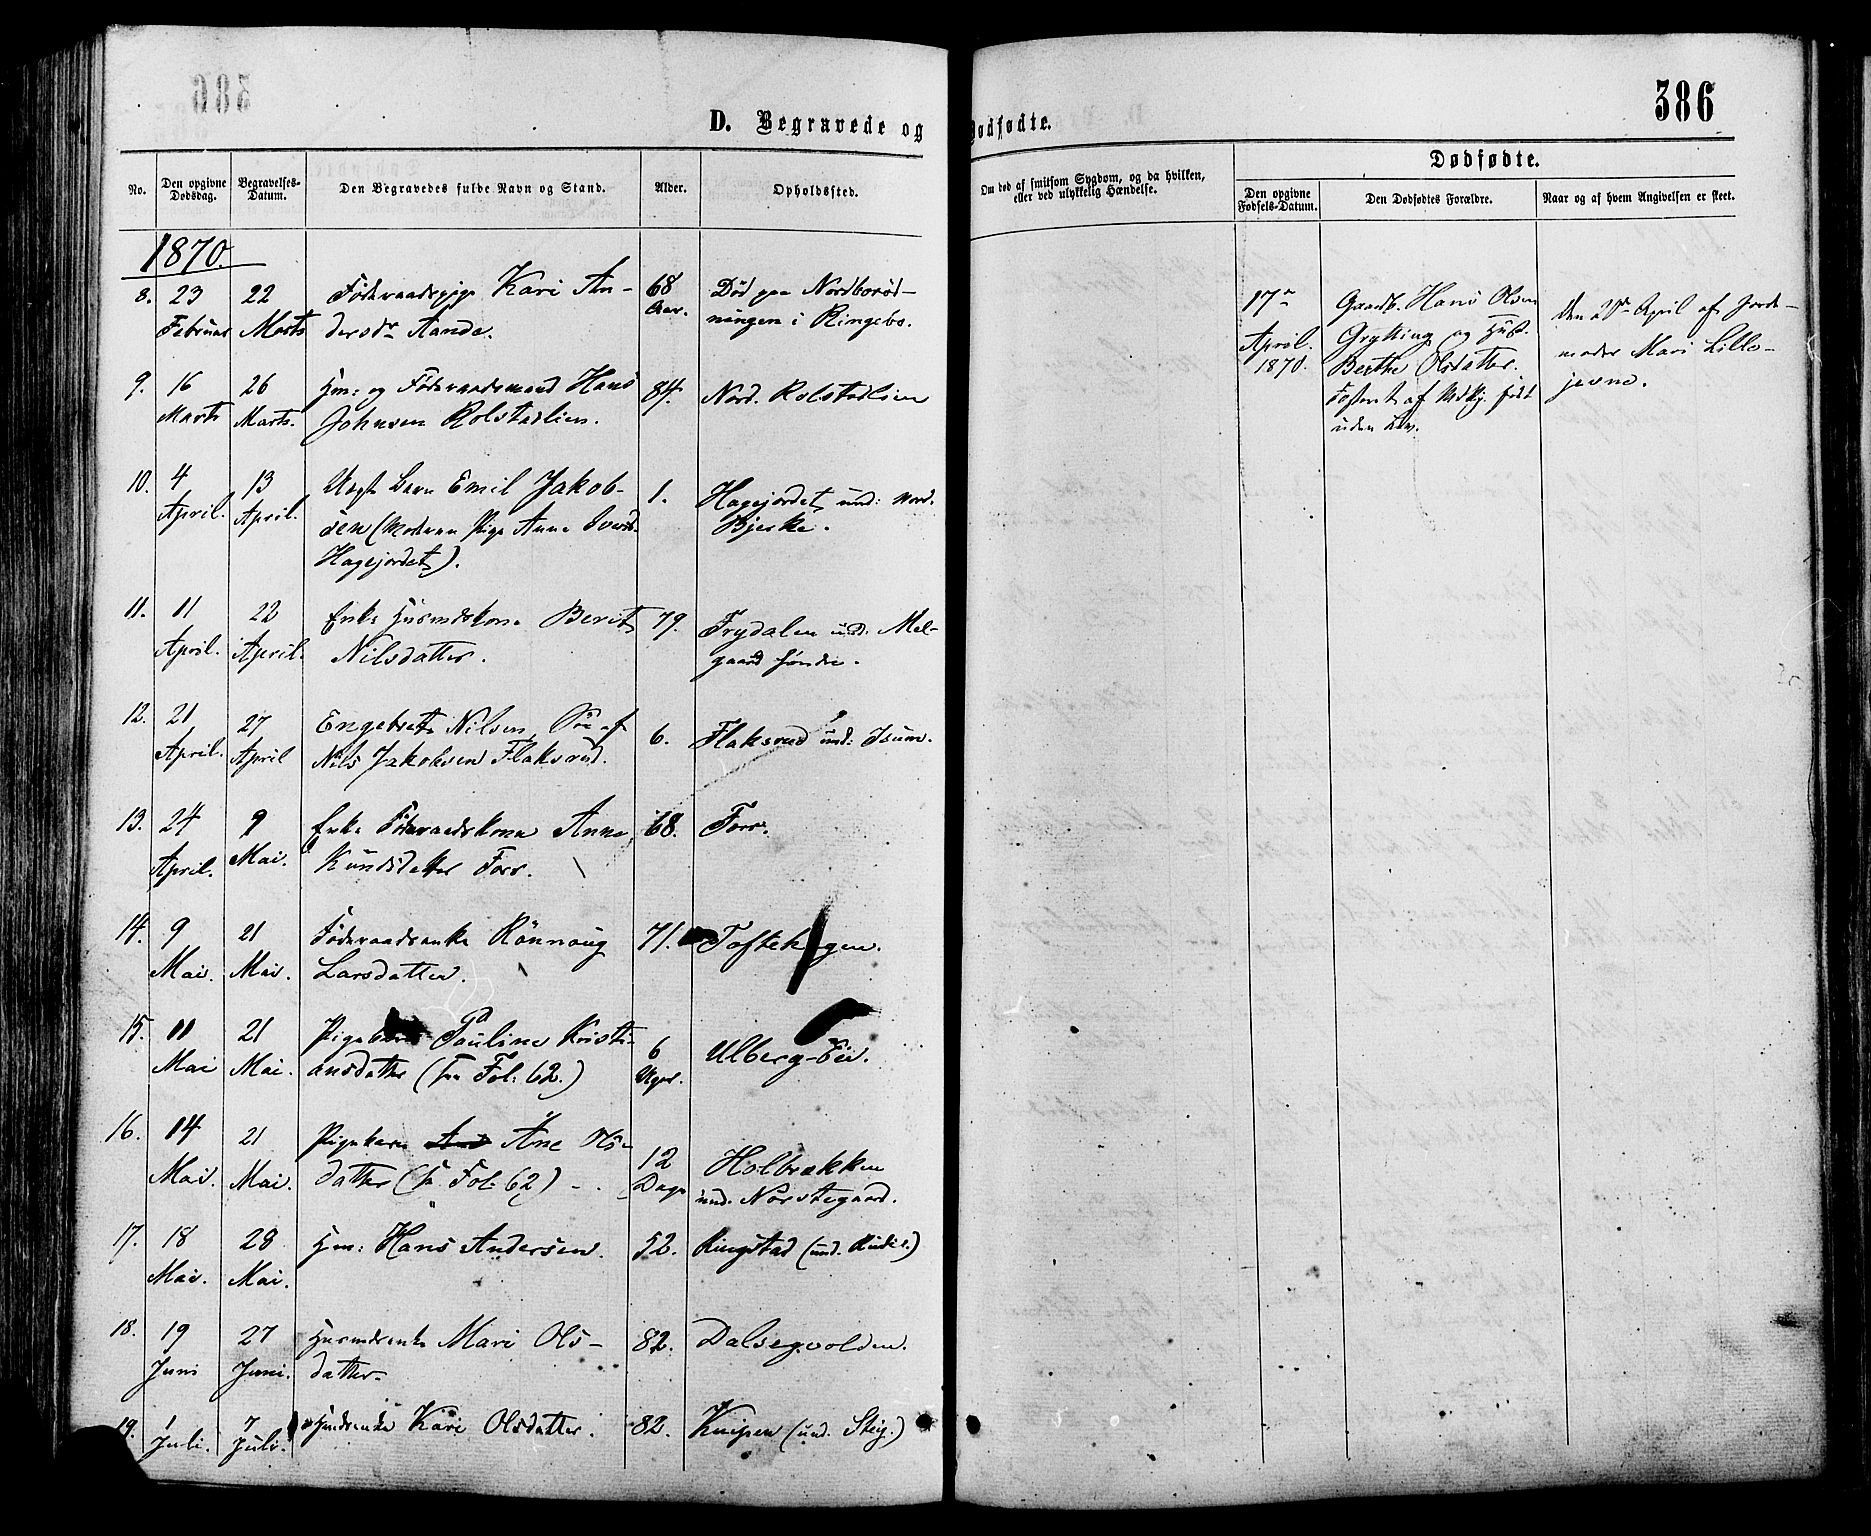 386
D. Begravede og Dødfødte.
No.
Den opgivne Dødsdag.
Begravelses-Datum.
Den Begravedes fulde Navn og Stand.
Alder.
Opholdssted.
Om død af smitsom Sygdom, og da hvilken, eller ved ulykkelig Hændelse.
Dødfødte.
Den opgivne Fødsels-Datum.
Den Dødfødtes Forældre.
Naar og af hvem Angivelsen er skeet.
1870.
8. 23 Februar 22 Marts Föderaadspige Kari An-
dersdr Aande. 68 Aar. Död paa
ningen i Ringebo.
9. 16 Marts 26 Marts. Hm: og Föderaadsmand Hans
Johnsen Rolstadlien. 84. Nord. Rolstadlien
10. 4 April. 13 April. Uægte Barn Emil Jakob-
sen (Moderen Pige Anne Iversd.
Hagejordet). 1. Hagejordet und: nord.
Bjerke.
11. 11 April. 22 April. Enke Husmdskone Berit
Nilsdatter. 79. Frydalen und: Mel-
gaard søndre.
12. 21 April. 27 April Engebret Nilsen, Sön af
Nils Jakobsen Flaksrud. 6. Flaksrud und: Isum.
13. 24 April. 9 Mai. Enke Föderaadskone Anne
Knudsdatter Forr. 68. Forr.
14. 9 Mai. 21 Mai. Föderaadsenke Rönnoug
Larsdatter. 71. Toftehagen.
15. 11 Mai 21 Mai. Pigebarn Pauline Kristi-
ansdatter (se Fol: 62.) 6 Uger. Ulberg-Eie.
16. 14 Mai. 21 Mai. Pigebarn Ane Ols-
datter (se Fol: 62) 12 Dage Holbrækken
und. Norstegaard.
17. 18 Mai. 28 Mai. Hm: Hans Andersen. 52. Ringstad (und. )
18. 19 Juni 27 Juni. Husmdsenke Mari Ols-
datter. 82. Dalsegvolden.
19. 1 Juli. 7 Juli. Husmdsenke Kari Olsdatter. 82. Knipen (und. Steig.)
17de
April.
1870.
Gaardb. Hans Olsen
Grytting og Hust.
Berthe Olsdatter.
Fosteret af Mdkj. født
uden Liv.
Den April af Jorde-
moder Mari Lille-
jevne.